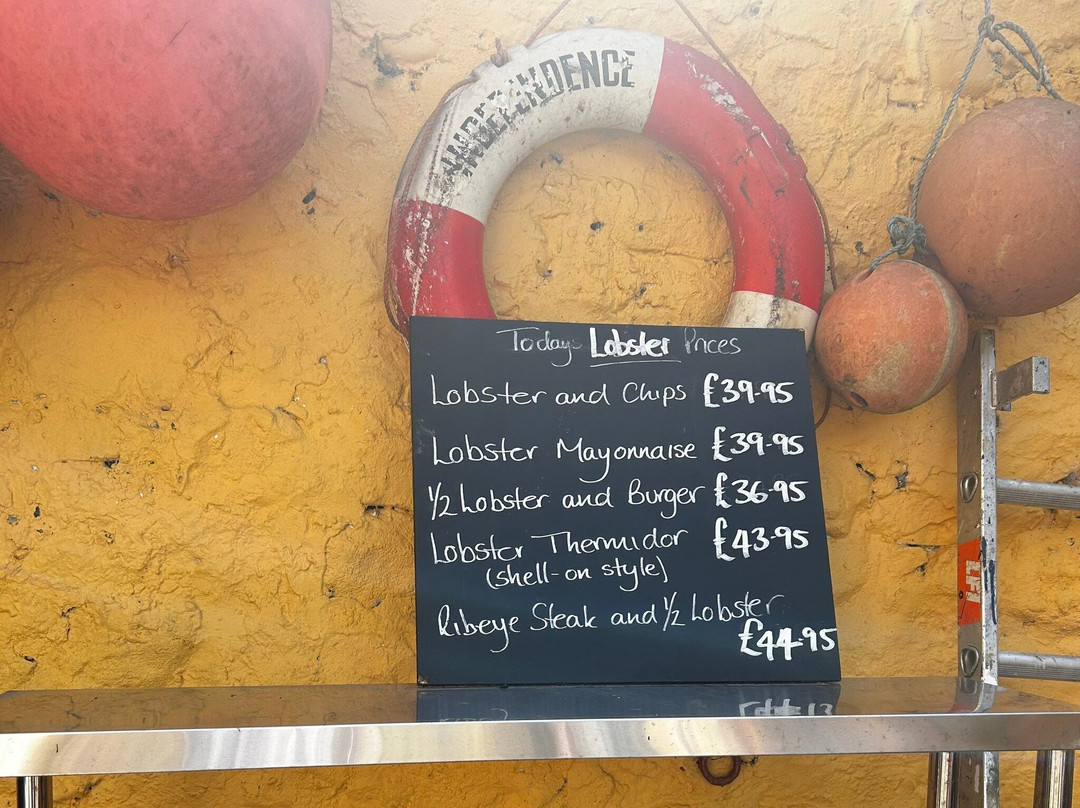 INDEPENDENCE
Todays Lobster Prices
Lobster and Chips £39.95
Lobster Mayonnaise £39.95
1/2 Lobster and Burger £36.95
Lobster Thermidor £43.95
(shell-on style)
Ribeye Steak and 1/2 Lobster
£44.95
LFI